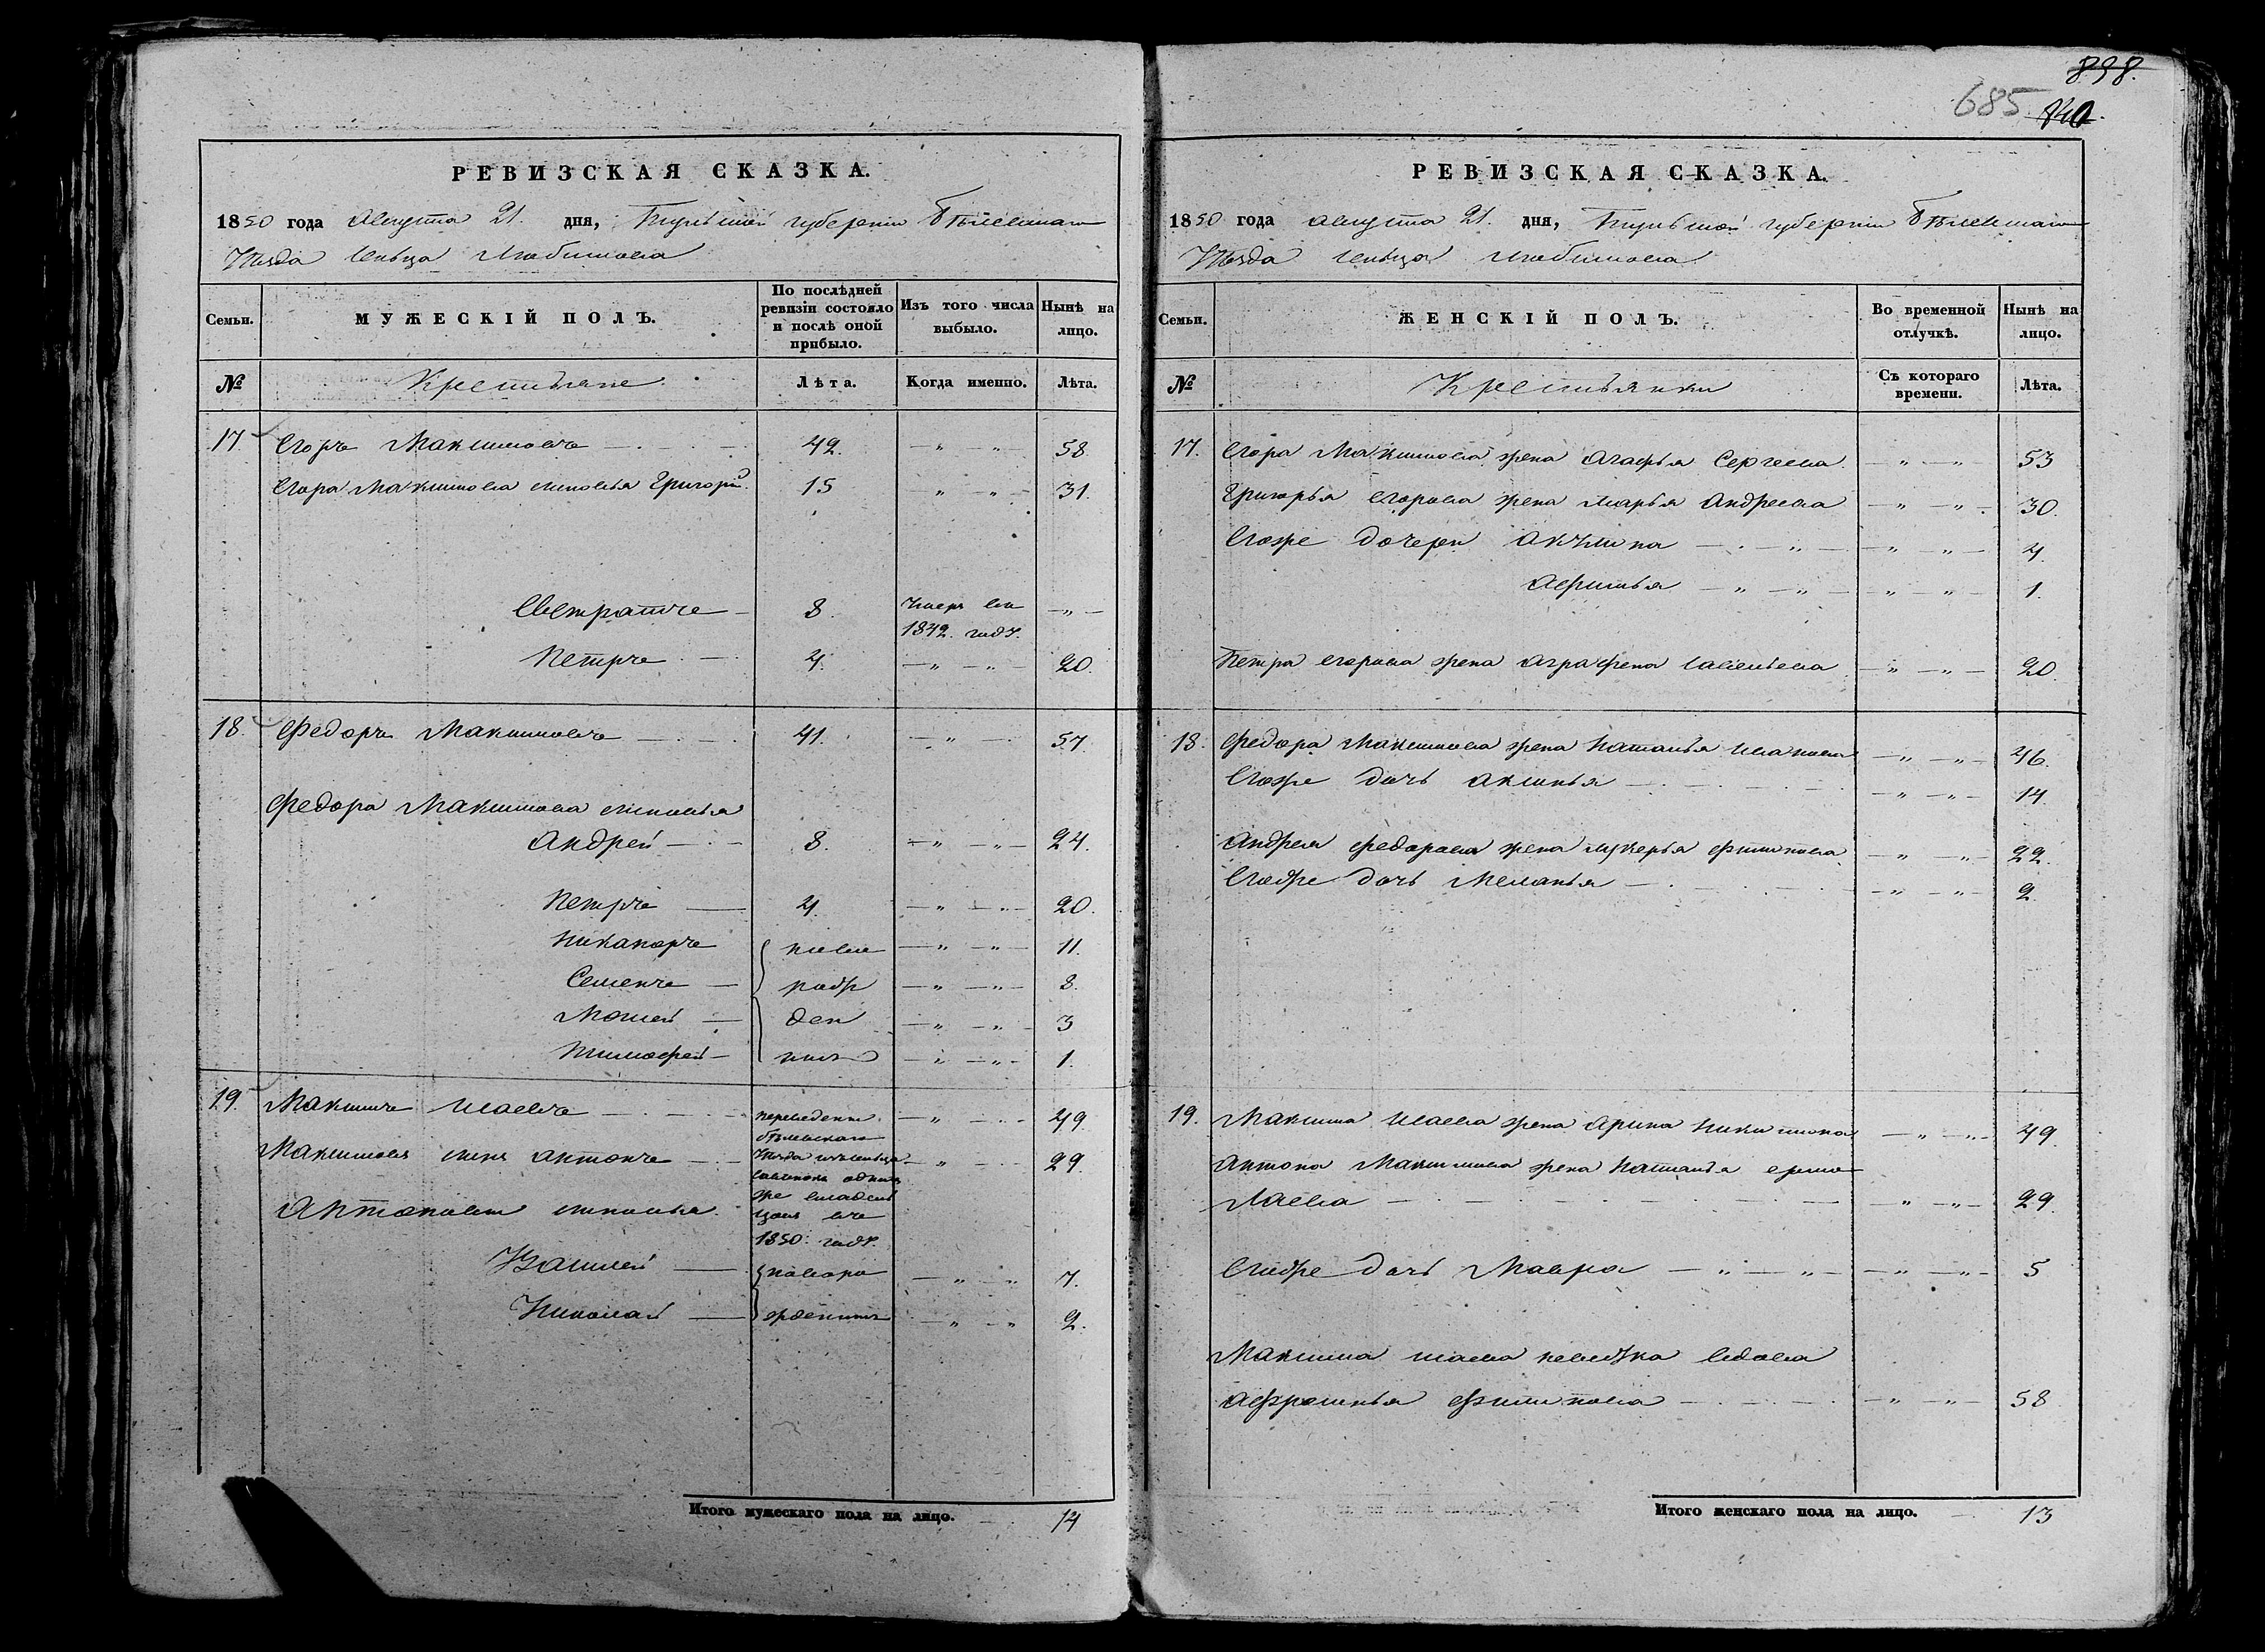 898.
685 840.
РЕВИЗСКАЯ СКАЗКА.
1850 года Августа 21. дня, Тульской губернии Бѣлевскаго
Уѣзда сельца Любимова
Семьи. МУЖЕСКІЙ ПОЛЪ. По послѣдней ревизіи состояло и послѣ оной прибыло. Изъ того числа выбыло. Нынѣ на лицо.
№ Крестьяне Лѣта. Когда именно. Лѣта.
17. Егоръ Максимовъ 42. 58
Егора Максимова сыновья Григорій 15 31.
Евстратъ 8. Умеръ въ 1842. году.
Петръ 4. 20.
18. Федоръ Максимовъ 41. 57.
Федора Максимова сыновья
Андрей 8. 24.
Петръ 4. 20.
Никаноръ 11.
Семенъ 8.
Мосей 3
Тимофей 1.
19. Максимъ Исаевъ переведены 49.
Бѣлевскаго
Максимовъ сынъ Антонъ Уѣзда изъ сельца 29.
же владель
Антоновы сыновья
цовъ въ
1850. году.
Василей новоро 7.
Николай жденныя 2.
Итого мужескаго пола на лицо. 14
РЕВИЗСКАЯ СКАЗКА.
1850 года августа 21. дня, Тульской губернии Бѣлевскаго
Уѣзда сельца Любимова
Семьи. ЖЕНСКІЙ ПОЛЪ. Во временной отлучкѣ. Нынѣ на лицо.
№ Крестьянки Съ котораго времени. Лѣта.
17. Егора Максимова жена Агафья Сергеева 53
Григорья Егорова жена Марья Андреева 30.
Егоже дочери Акулина 4.
1.
Петра Егорова жена Аграфена Савельева 20.
18. Федора Максимова жена Наталья Иванова 46.
Егоже дочь Аксинья 14.
Андрея Федорова жена Лукерья Филипова 22.
Егоже дочь Меланья 2.
19. Максима Исаева жена Арина Никитина 49.
Антона Максимова жена Наталья Ермо
лаева 29.
Егоже дочь Мавра 5
Максима Исаева невестка вдова
Афросинья Филипова 58
Итого женскаго пола на лицо. 13